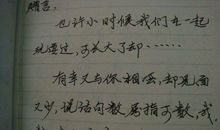 也许小时候我们在一起
玩耍过，可长大了却……
有幸又与你相逢，却见面
又少，说话句数屈指可数，或